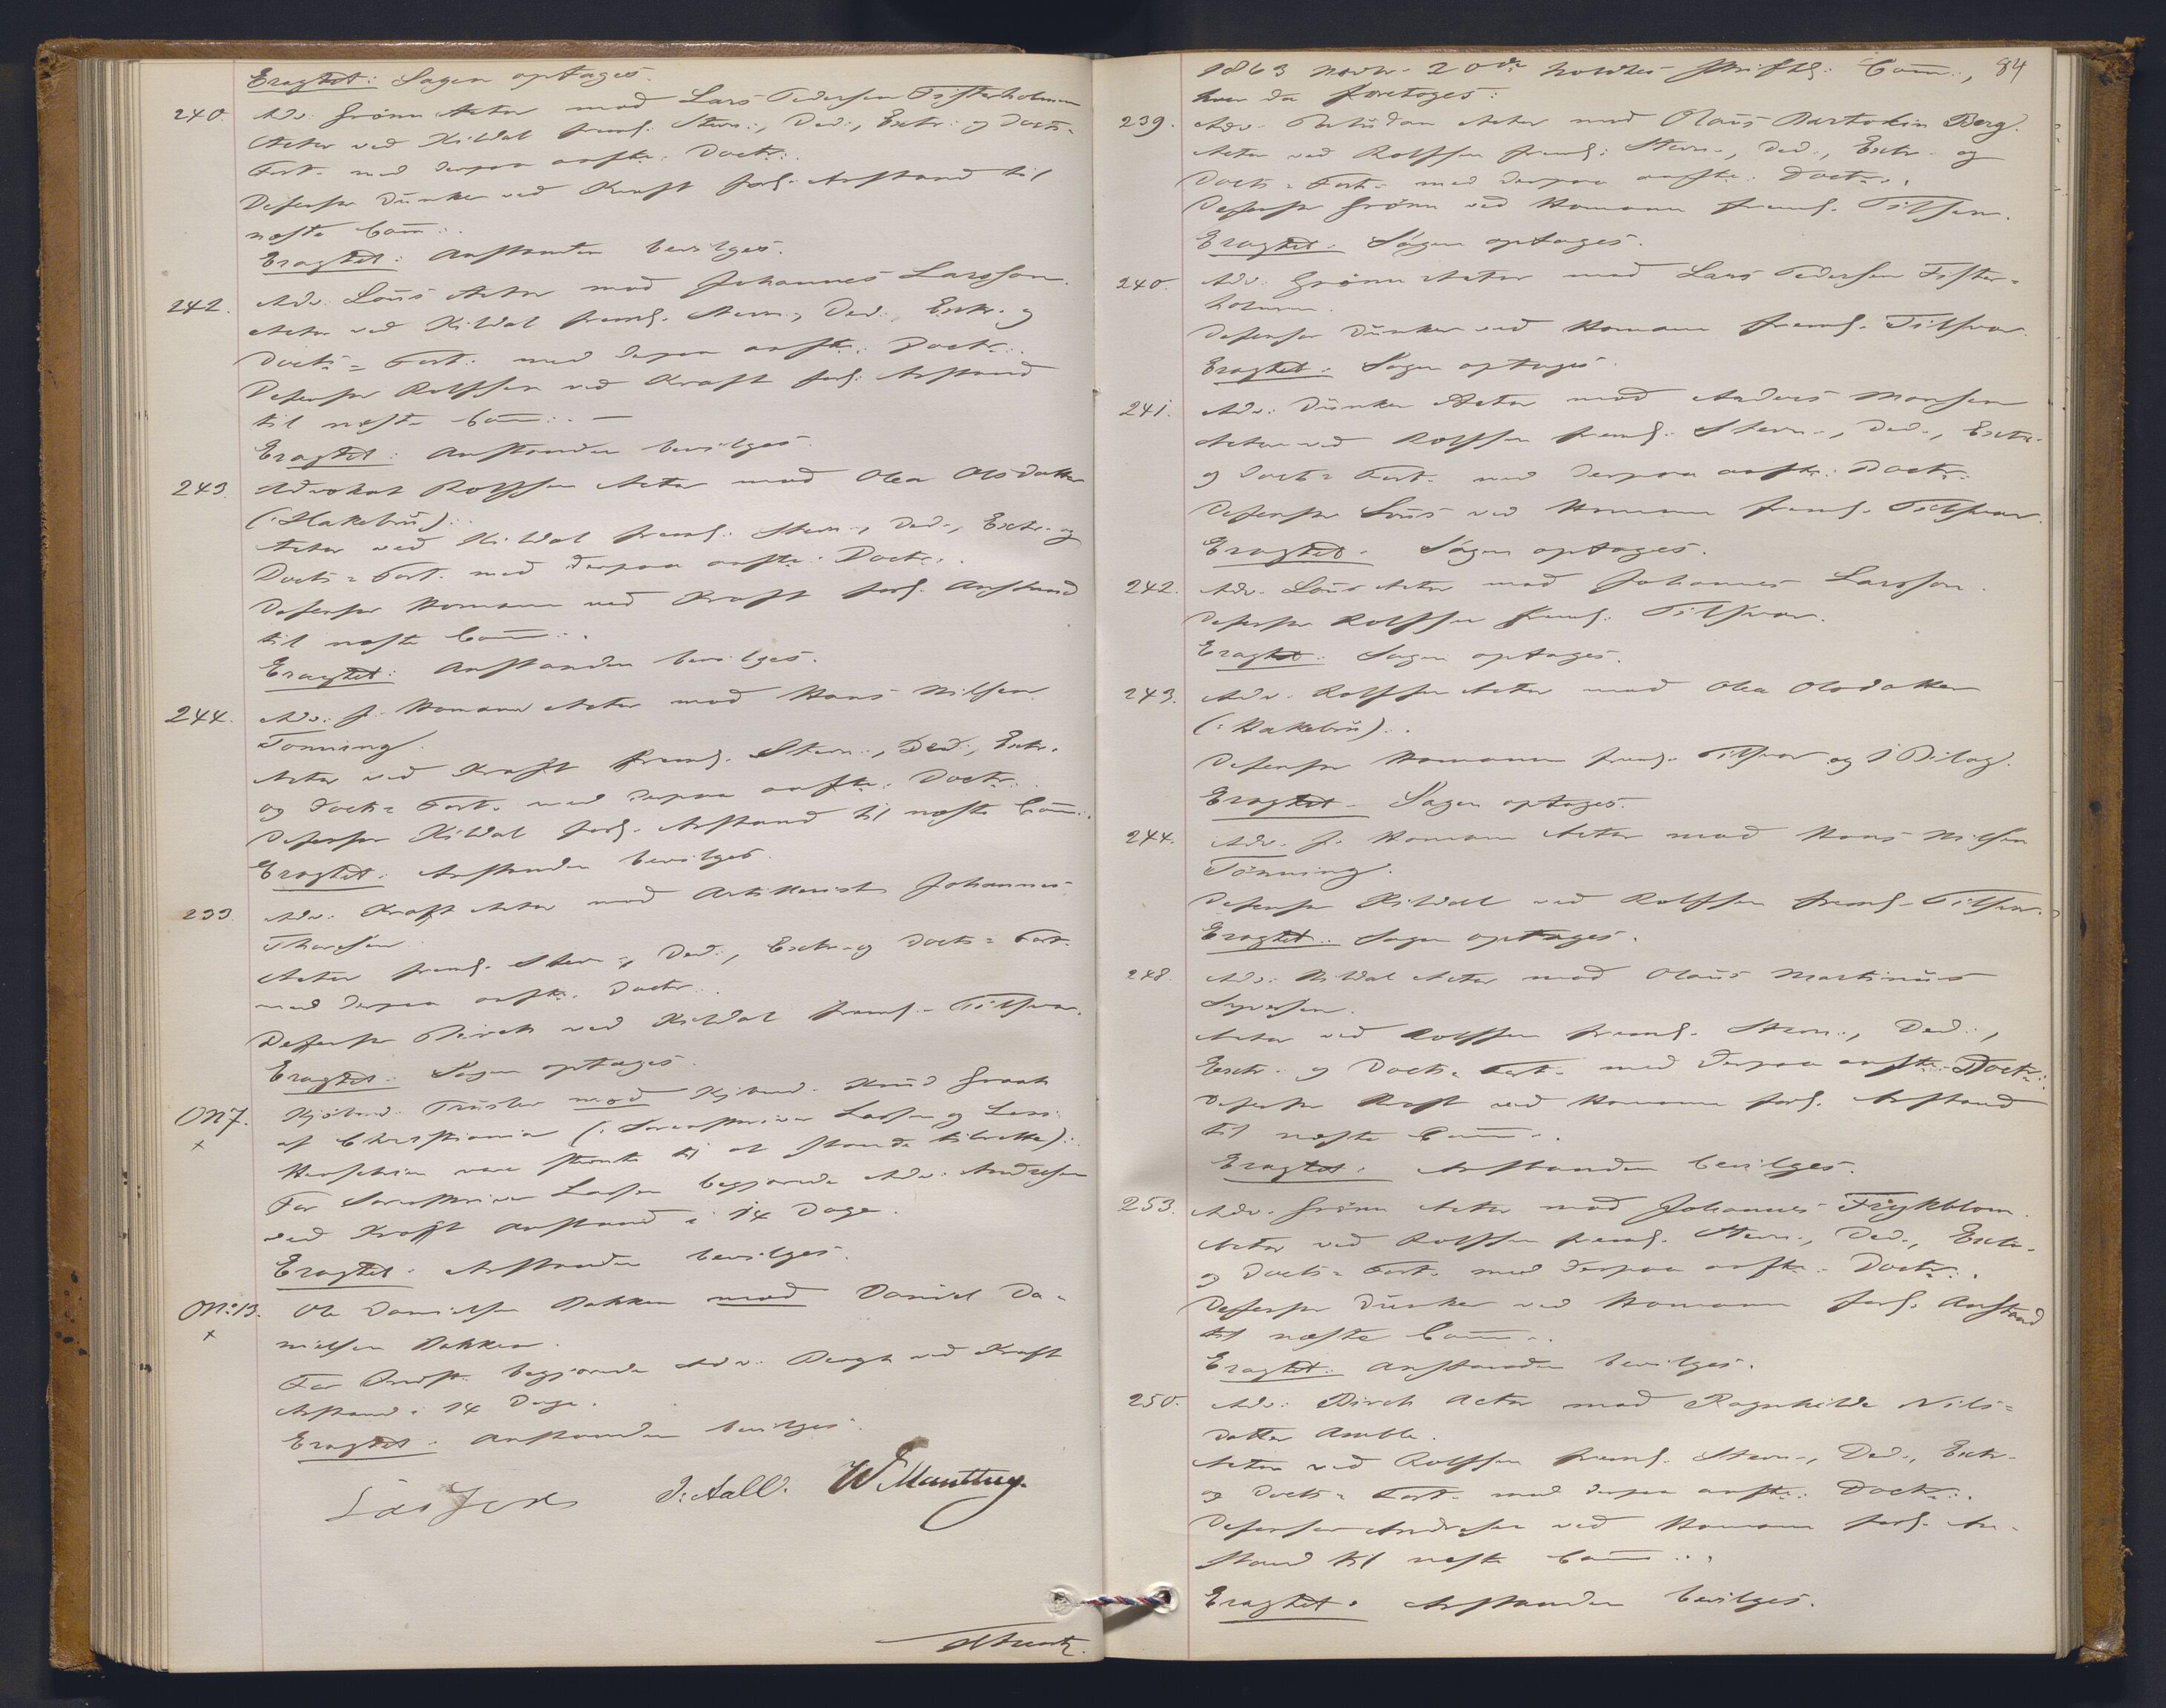 Eragtet: Sagen optages.
240. Adv. Grönn Actor mod Lars Pedersen Fisterholmen
Actor ved Kildal freml. Stevn., Ded., Extr. og Docts.
Fort. med derpaa anfte. Doctr.
Defensor Dunker ved Kraft forl. Anstand til
næste Com:.
Eragtet: Anstanden bevilges.
242. Adv. Lous Actor mod Johannes Larsson.
Actor ved Kildal freml. Stevn., Ded., Extr. og
Docts = Fort. med derpaa anfte. Doctr.
Defensor Rolfsen ved Kraft forl. Anstand
til næste Com:. —
Eragtet: Anstanden bevilges.
243. Advokat Rolfsen Actor mod Olea Olsdatter
(: Hakebru):
Actor ved Kildal freml. Stevn., Ded., Extr. og
Docts = Fort. med derpaa anfte. Doctr.
Defensor Homann ved Kraft forl. Anstand
til næste Com:.
Eragtet: Anstanden bevilges.
244. Adv. J. Homann Actor mod Hans Nilsen
Tønning.
Actor ved Kraft freml. Stevn., Ded., Extr.
og Docts = Fort. med derpaa anfte. Doctr.
Defensor Kildal forl. Anstand til næste Com:.
Eragtet: Anstanden bevilges.
233. Adv. Kraft Actor mod Artillerist Johannes
Thoresen.
Actor freml. Stevn., Ded., Extr. og Docts = Fort.
med derpaa anfte. Doctr.
Defensor Birch ved Kildal freml. Tilsvar.
Eragtet: Sagen optages.
ON 7. Kjøbmd. mod Kjøbmd. Knud Graah
x af Christiania (: Sorenskriver Lassen og
vare stevnte til at staande tilrette):
For Sorenskriver Lassen begjærede Adv. Andresen
ved Kraft Anstand i 14 Dage.
Eragtet: Anstanden bevilges.
ON: 13. Ole Danielsen Bakken mod Daniel Da-
x nielsen Bakken.
For begjærede Adv. Bergh ved Kraft
Anstand i 14 Dage.
Eragtet: Anstanden bevilges.
Lasson J: Aall. W Manthey.
1863 Novbr. 20de holdtes skriftl. Com:, 84
hvor da foretoges:
239. Adv. Actor mod Olaus Bartolin Berg.
Actor ved Rolfsen freml. Stevn., Ded., Extr. og
Docts = Fort. med derpaa anfte. Doctr.
Defensor Grönn ved Homann freml. Tilsvar.
Eragtet: Sagen optages.
240. Adv. Grönn Actor mod Lars Pedersen Fister-
holmen.
Defensor Dunker ved Homann freml. Tilsvar.
Eragtet: Sagen optages.
241. Adv. Dunker Actor mod Anders Monsen
Actor ved Rolfsen freml. Stevn., Ded., Extr.
og Docts = Fort. med derpaa anfte. Doctr.
Defensor Lous ved Homann freml. Tilsvar.
Eragtet: Sagen optages.
242. Adv. Lous Actor mod Johannes Larsson.
Defensor Rolfsen freml. Tilsvar.
Eragtet: Sagen optages.
243. Adv. Rolfsen Actor mod Olea Olsdatter
(: Hakebru):
Defensor Homann freml. Tilsvar og 1 Bilag.
Eragtet: Sagen optages.
244. Adv. J. Homann Actor mod Hans Nilsen
Tönning.
Defensor Kildal ved Rolfsen freml. Tilsvar.
Eragtet: Sagen optages.
248. Adv. Kildal Actor mod Olaus Martinus
Syversen.
Actor ved Rolfsen freml. Stevn., Ded.,
Extr. og Docts = Fort. med derpaa anfte. Doctr.
Defensor Kraft ved Homann forl. Anstand
til næste Com:.
Eragtet: Anstanden bevilges.
253. Adv. Grönn Actor mod Johannes Frykblom.
Actor ved Rolfsen freml. Stevn., Ded., Extr.
og Docts = Fort. med derpaa anfte. Doctr.
Defensor Dunker ved Homann forl. Anstand
til næste Com:.
Eragtet: Anstanden bevilges.
250. Adv. Birch Actor mod Ragnhilda Nils-
datter Amble.
Actor ved Rolfsen freml. Stevn., Ded., Extr.
og Docts = Fort. med derpaa anfte. Doctr.
Defensor Andresen ved Homann forl. An-
stand til næste Com:.
Eragtet: Anstanden bevilges.